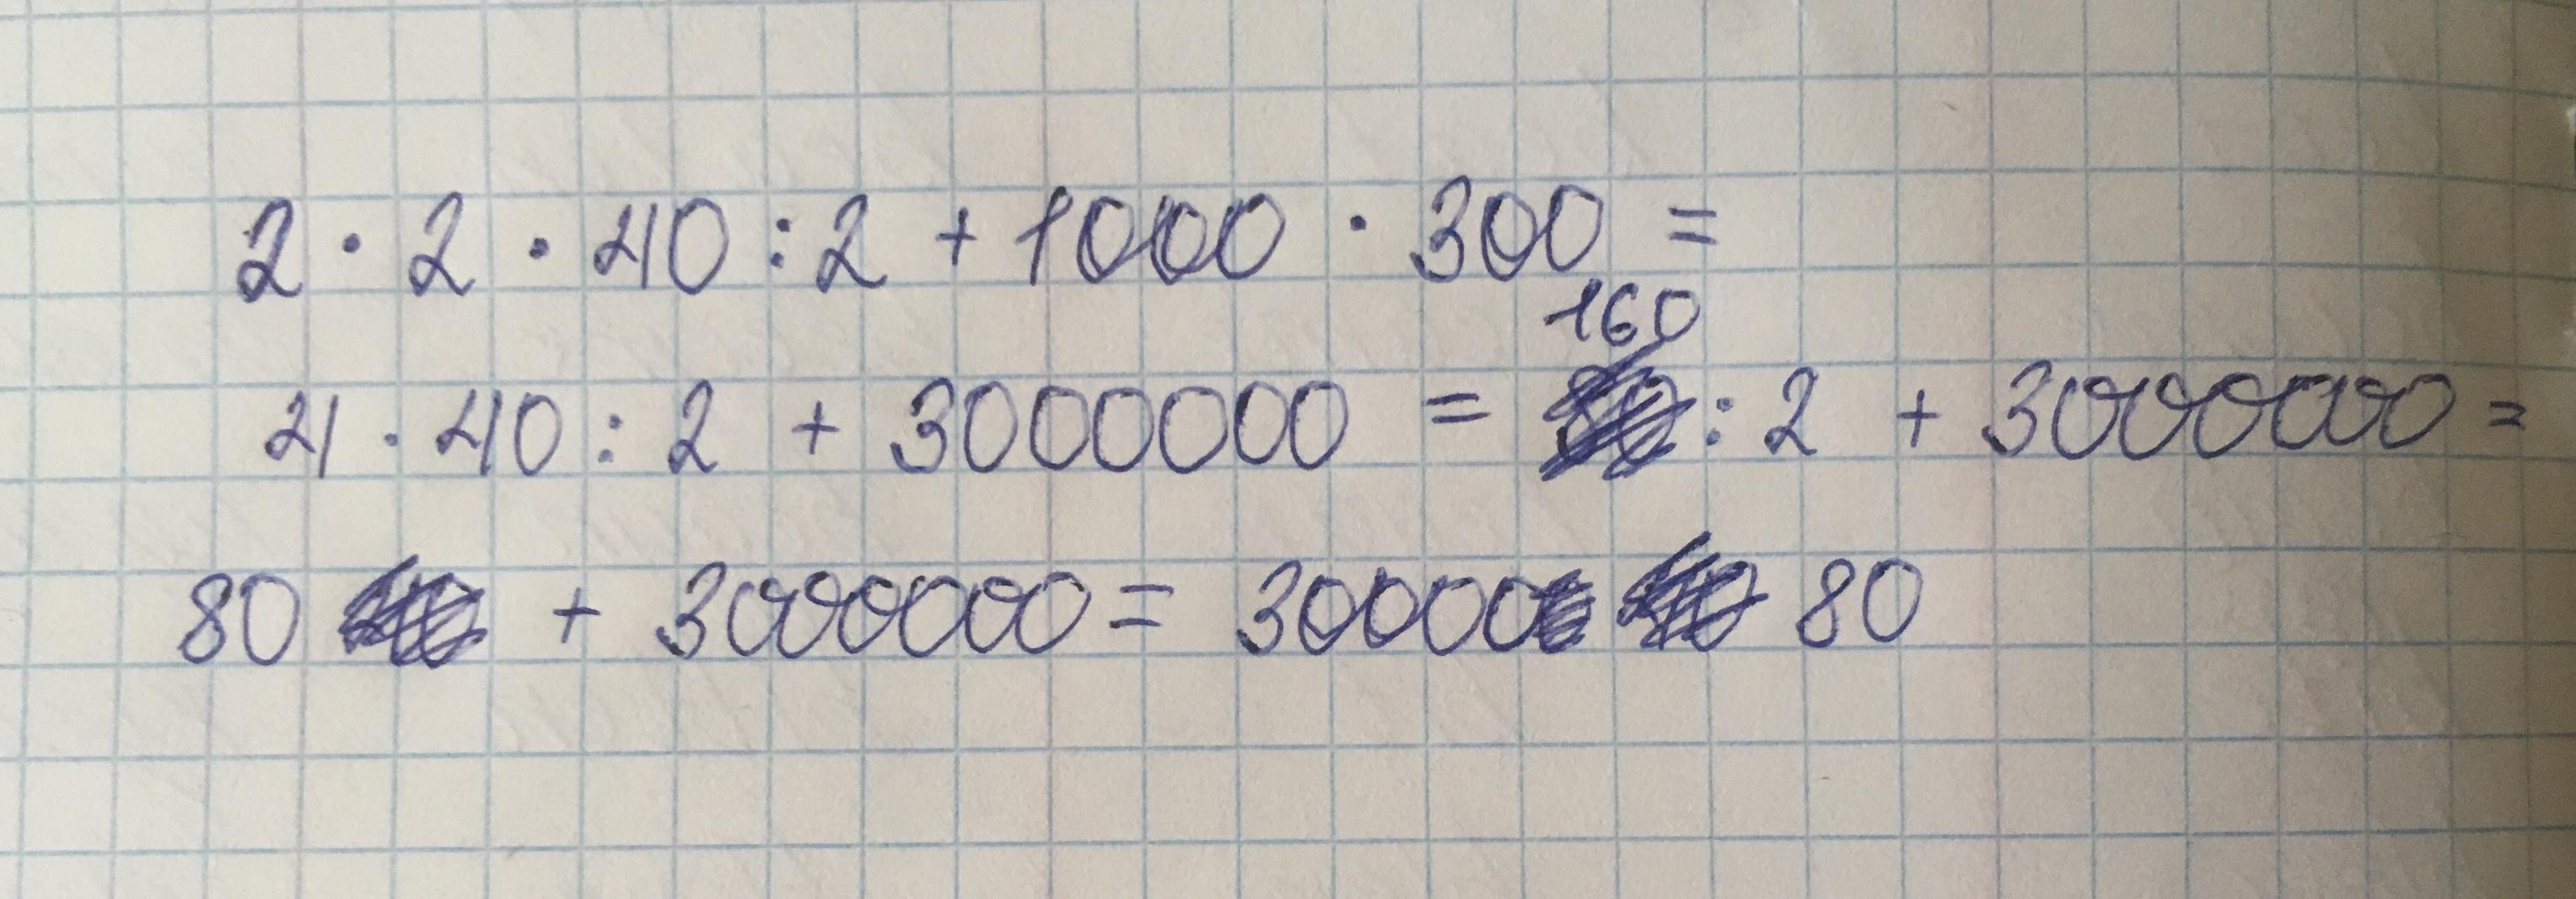 2 · 2 · 40 : 2 + 10000 · 300 =
160
4 · 40 : 2 + 3000000 = : 2 + 3000000 =
80 + 3000000 = 30000 80